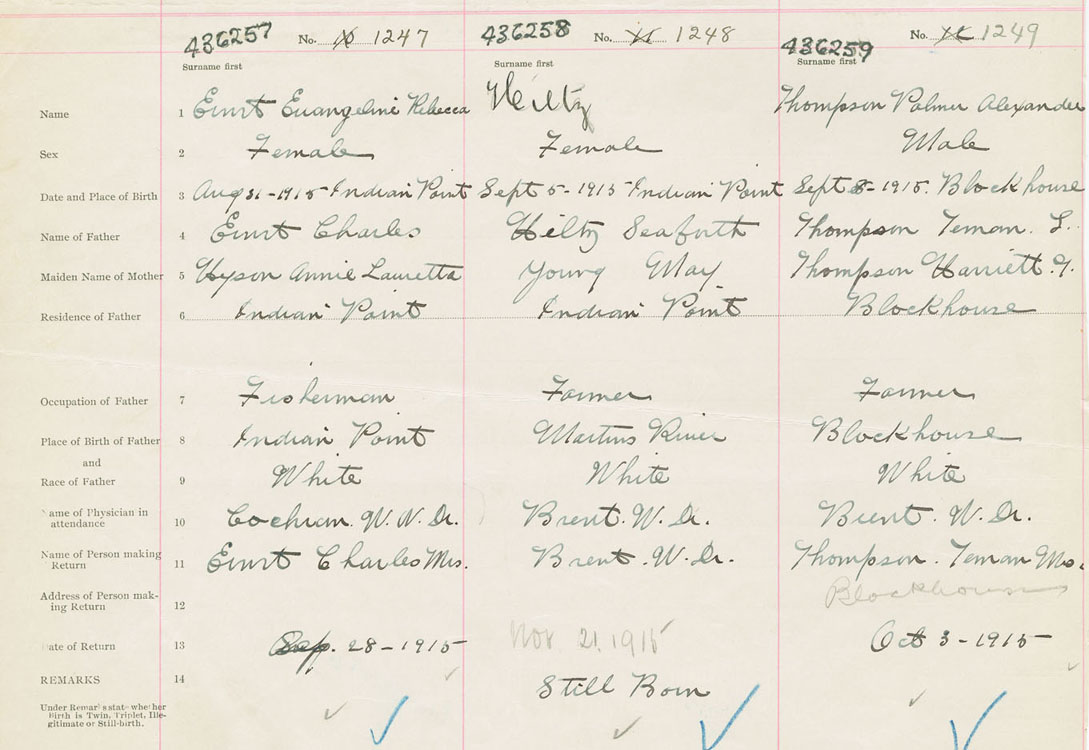 436257 No. 1247 436258 No. 1248 436259 No. 1249
Surname first Surname first Surname first
Name 1 Ernst Evangeline Rebecca Hiltz Thompson Palmer Alexander
Sex 2 Female Female Male
Date and Place of Birth 3 Aug 31-1915-Indian Point Sept 5-1915-Indian Point Sept 8-1915. Blockhouse
Name of Father 4 Ernst Charles Hiltz Seaforth Thompson Teman. L.
Maiden Name of Mother 5 Hyson Annie Lauretta Young May Thompson Harriett.
Residence of Father 6 Indian Point Indian Point Blockhouse
Occupation of Father 7 Fisherman Farmer Farmer
Place of Birth of Father 8 Indian Point Martins River Blockhouse
and
Race of Father 9 White White White
ame of Physician in
attendance 10 Cochran. W. N. Dr. Brent. W. Dr. Brent. W. Dr.
Name of Person making
Return 11 Ernst Charles Mrs. Brent. W. Dr. Thompson. Teman Mrs.
Address of Person mak-
ing Return 12 Blockhouse
ate of Return 13 Sep. 28-1915 Nov. 21. 1915 Oct 3-1915
REMARKS 14 Still Born
Under Remarks state whether
Birth is Twin, Triplet, Ille-
gitimate or Still-birth.